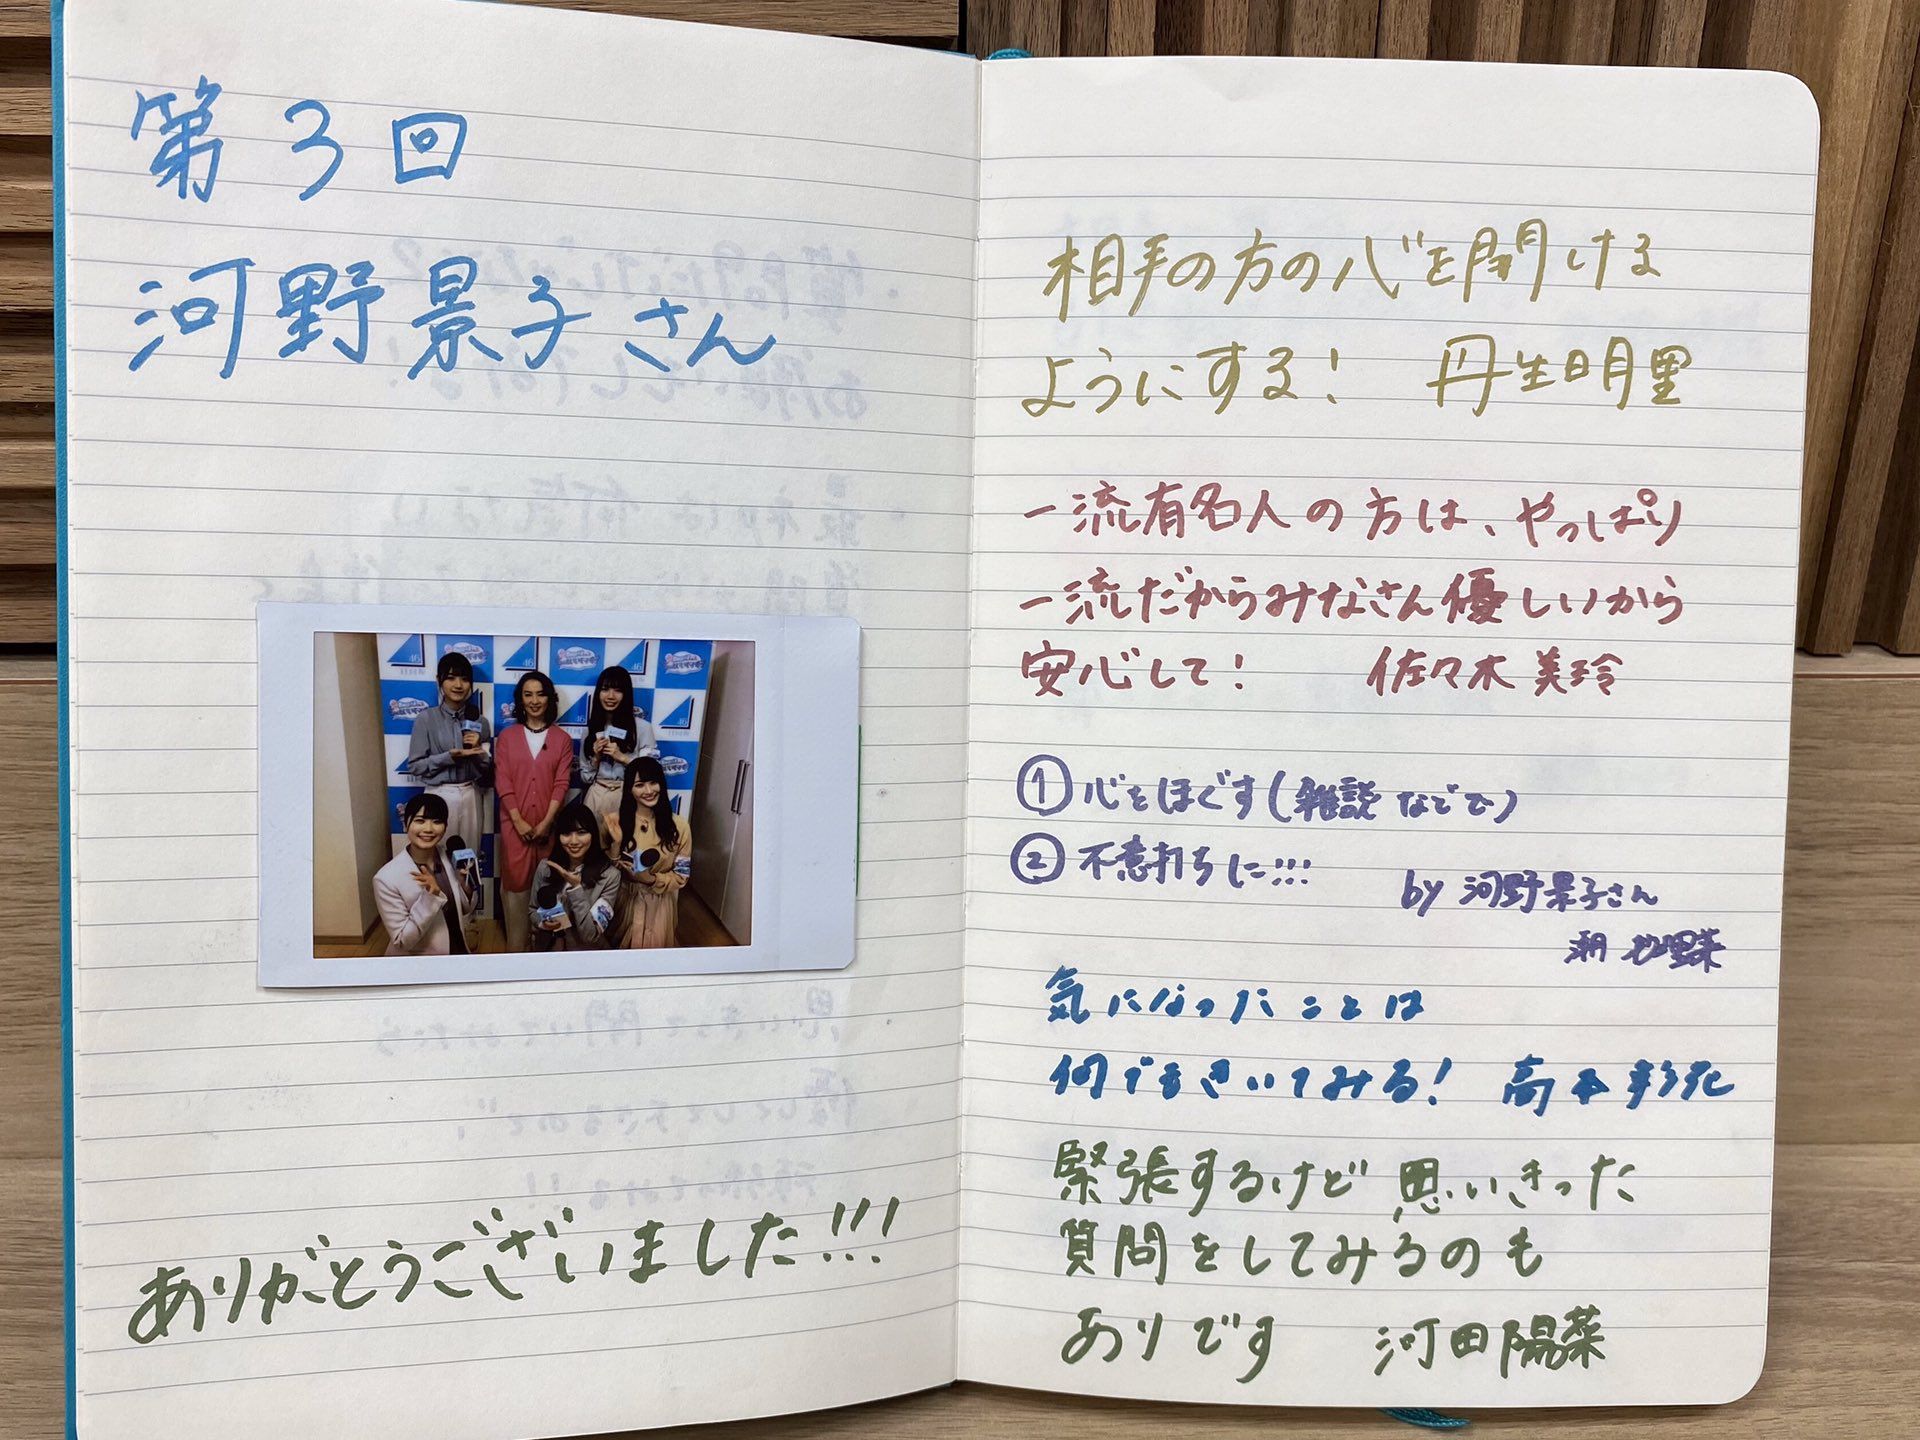 第3回
河野景子さん
46
46
46
ありがとうございました!!!
相手の方の心を開ける
ようにする! 丹生明里
一流有名人の方は、やっぱり
一流だからみなさん優しいから
安心して! 佐々木美玲
①心をほぐす(雑談などで)
②不意打ちに!!!
by 河野景子さん
潮 紗理菜
気になったことは
何でもきいてみる! 高本彩花
緊張するけど 思いきった
質問をしてみるのも
ありです 河田陽菜